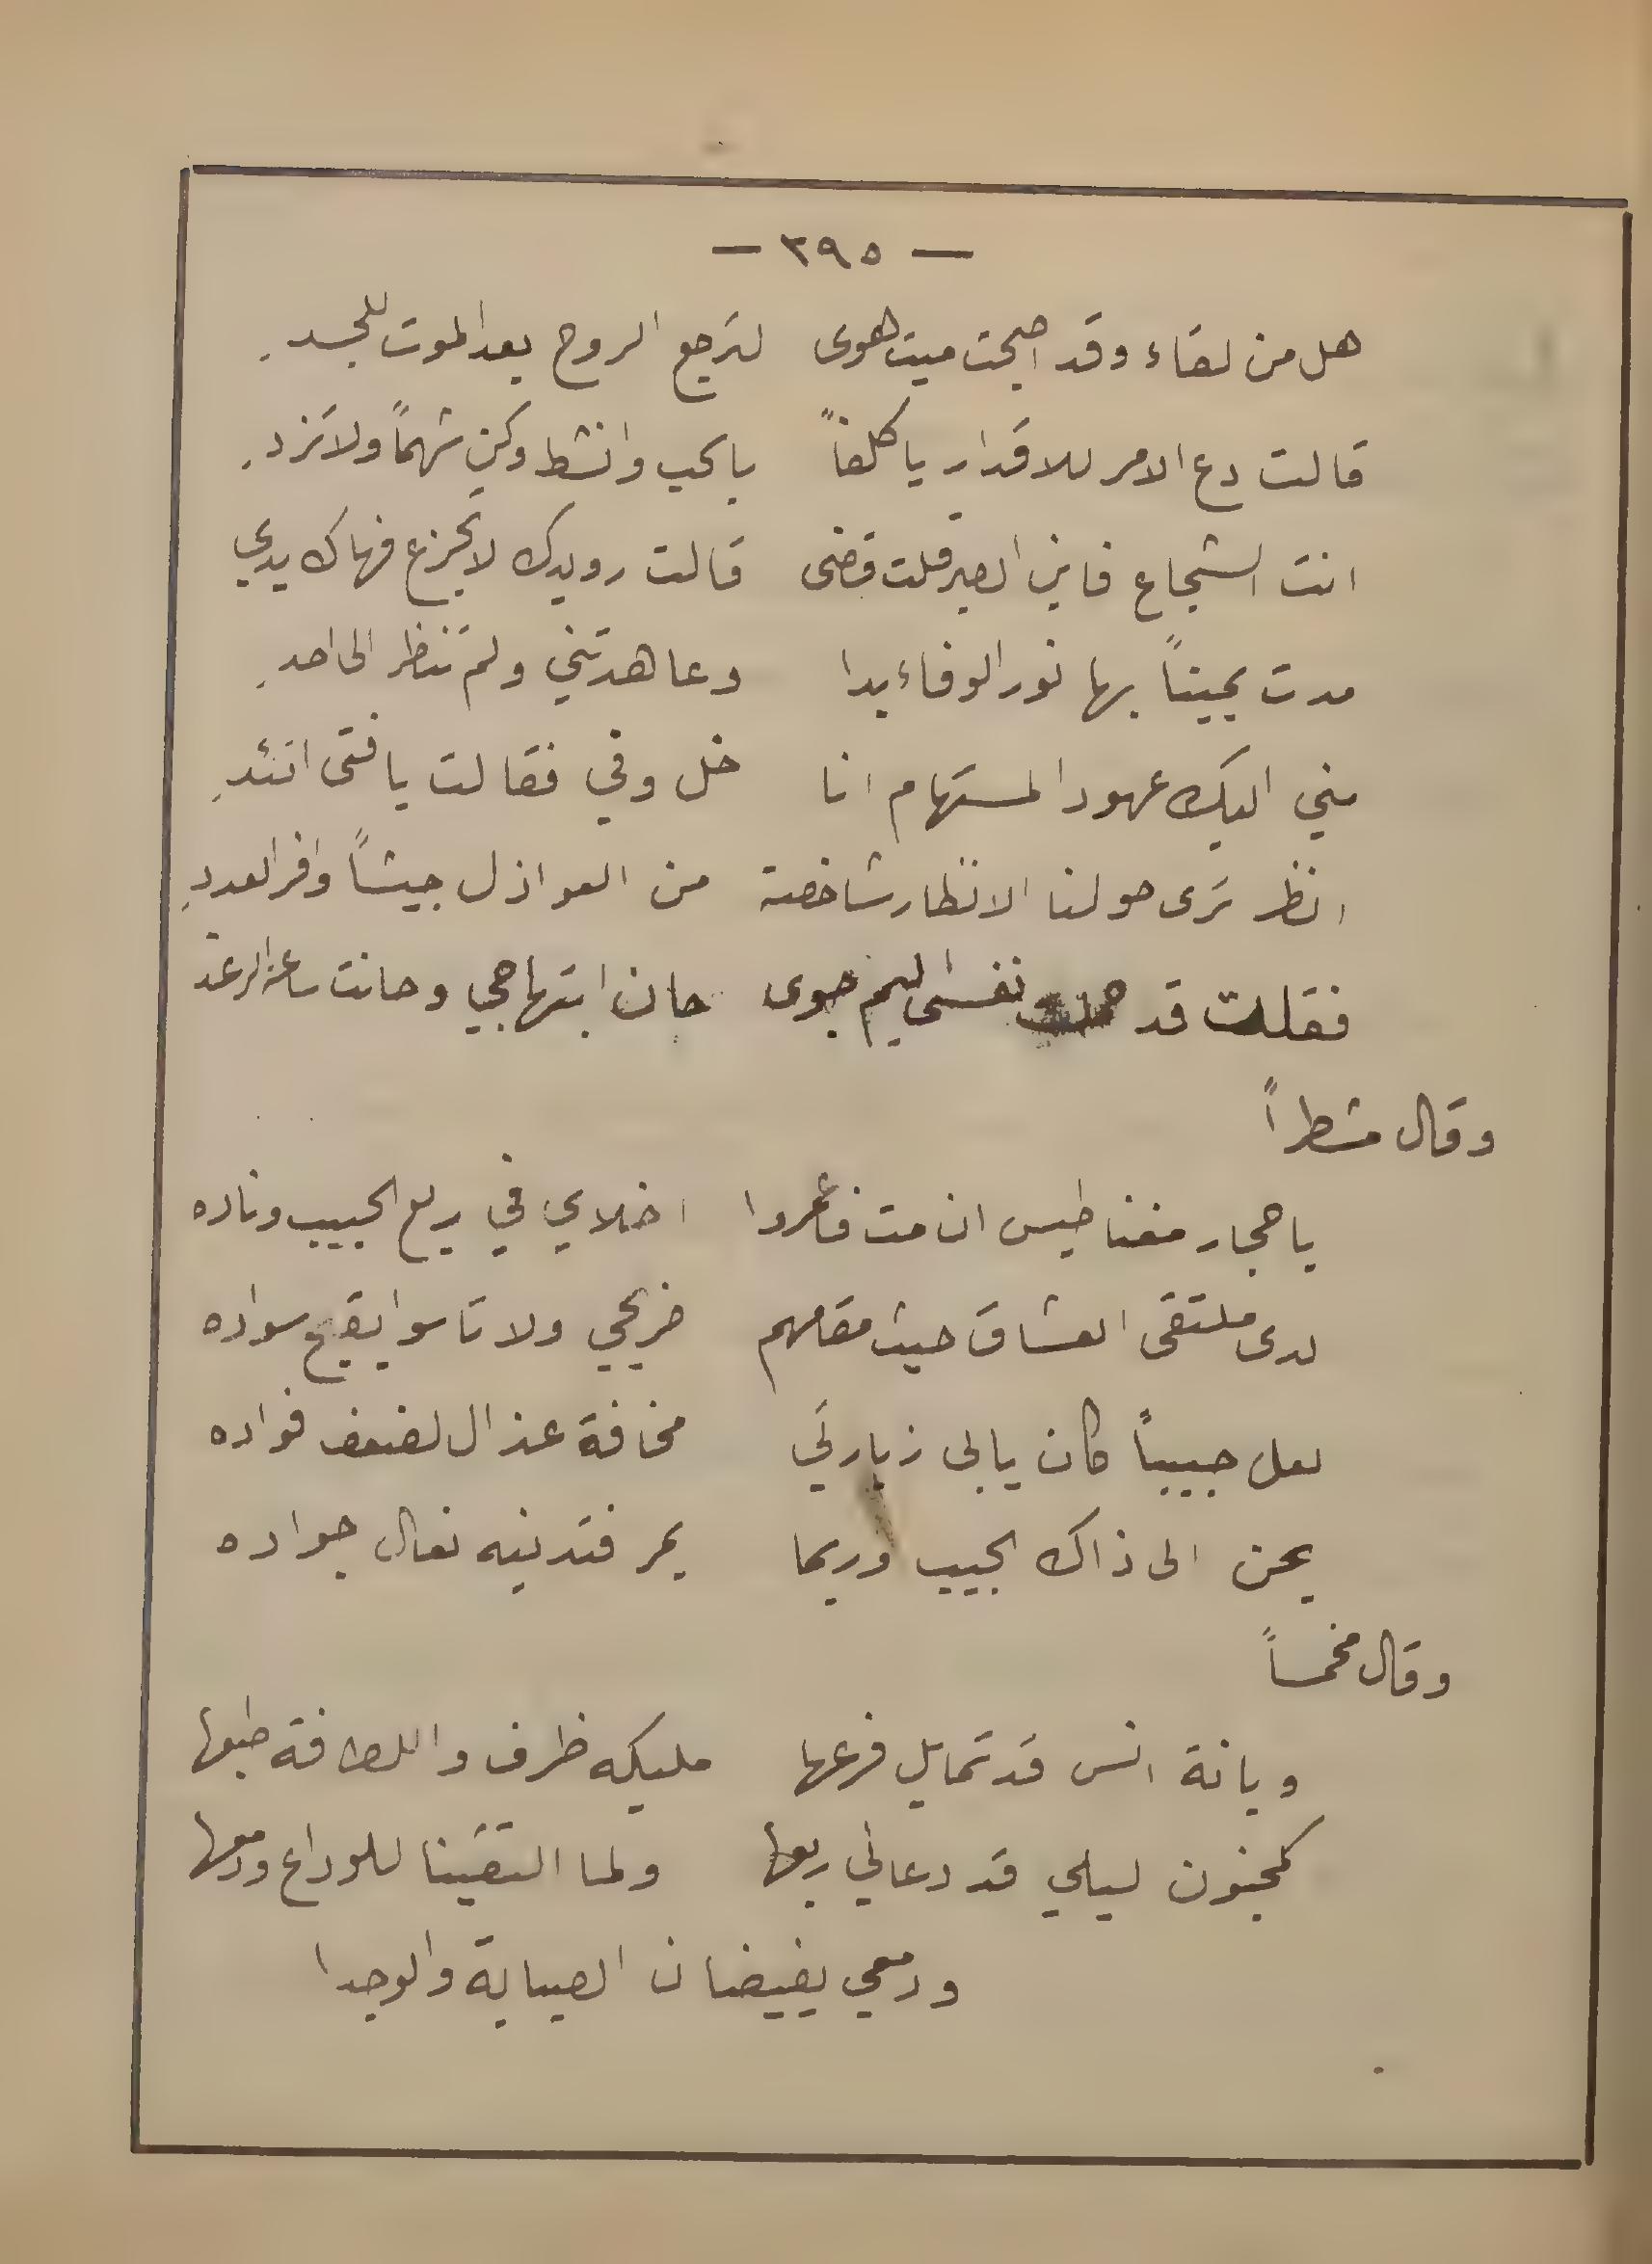 — ٣٩٥ —
هل من لقاء وقد اصبحت ميت هوى لترجع الروح بعد الموت للجسدِ
قالت دع الامر للاقدار يا كلفاً بالحب وانشط وكن شهماً ولا تزدِ
انت الشجاع فاين الصبر قلت قضى قالت رويدك لا تجزع فهاك يدي
مدت يميناً بها نور الوفاء بدا وعاهدتني ولم تنظر الى احدِ
مني اليك عهود المستهام انا خل وفي فقالت يا فتى اتئدِ
انظر ترى حولنا الانظار شاخصة من العواذل جيشاً وافر العددِ
فقلت قد نفسي اليم جوى حان ابتهاجي وحانت ساعة الرغد
وقال مشطراً
باحجار مغناطيس ان مت فاعمروا اخلاي في ربع الحبيب وناده
لدى ملتقى العشاق حيث مقامهم ضريحي ولا تاسوا بقيع سواده
لعل حبيباً كان يابى زيارتي مخافة عذال لضعف فواده
يحن الى ذاك الحبيب وربما يمر فتدنيه نعال جواده
وقال مخمساً
وبانة انس قد تمايل فرعها مليكه ظرف واللطافة طبعها
كمجنون ليلي قد دعاني ربعها ولما التقينا للوداع ودمعها
ودمعي يفيضان الصبابة والوجدا